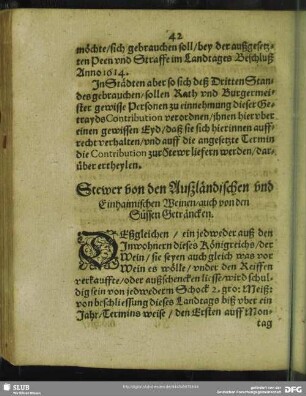 42
möchte/sich gebrauchen soll/bey der außgesetz-
ten Peen vnd Straffe im Landtages Beschluß
Anno 1614.
In Städten aber so sich deß Dritten Stan-
des gebrauchen/sollen Rath vnd Burgermei-
ster gewisse Personen zu einnehmung dieser Ge-
trayds Contribution verordnen/ihnen hierv ber
einen gewissen Eyd/daß sie sich hierinnen auff-
recht verhalten/vnd auff die angesetzte Termin
die Contribution zur Stewr liefern werden/dar-
über ertheylen.
Stewer von den Außländischen vnd
Einhaimischen Weinen/auch von den
Süssen Getråncken.
DEßgleichen/ein jedweder auß den
Inwohnern dieses Königreichs/der
Wein/sie seyen auch gleich was vor
Wein es wölle/vnder den Reiffen
verkauffte/oder außschencken liesse/wird schul-
dig sein von jedwederm Schock 2. gro: Meiß:
von beschliessung dieses Landtags biß vber ein
Jahr/Termins weise/den Ersten auff Mon-
tag
SLUB